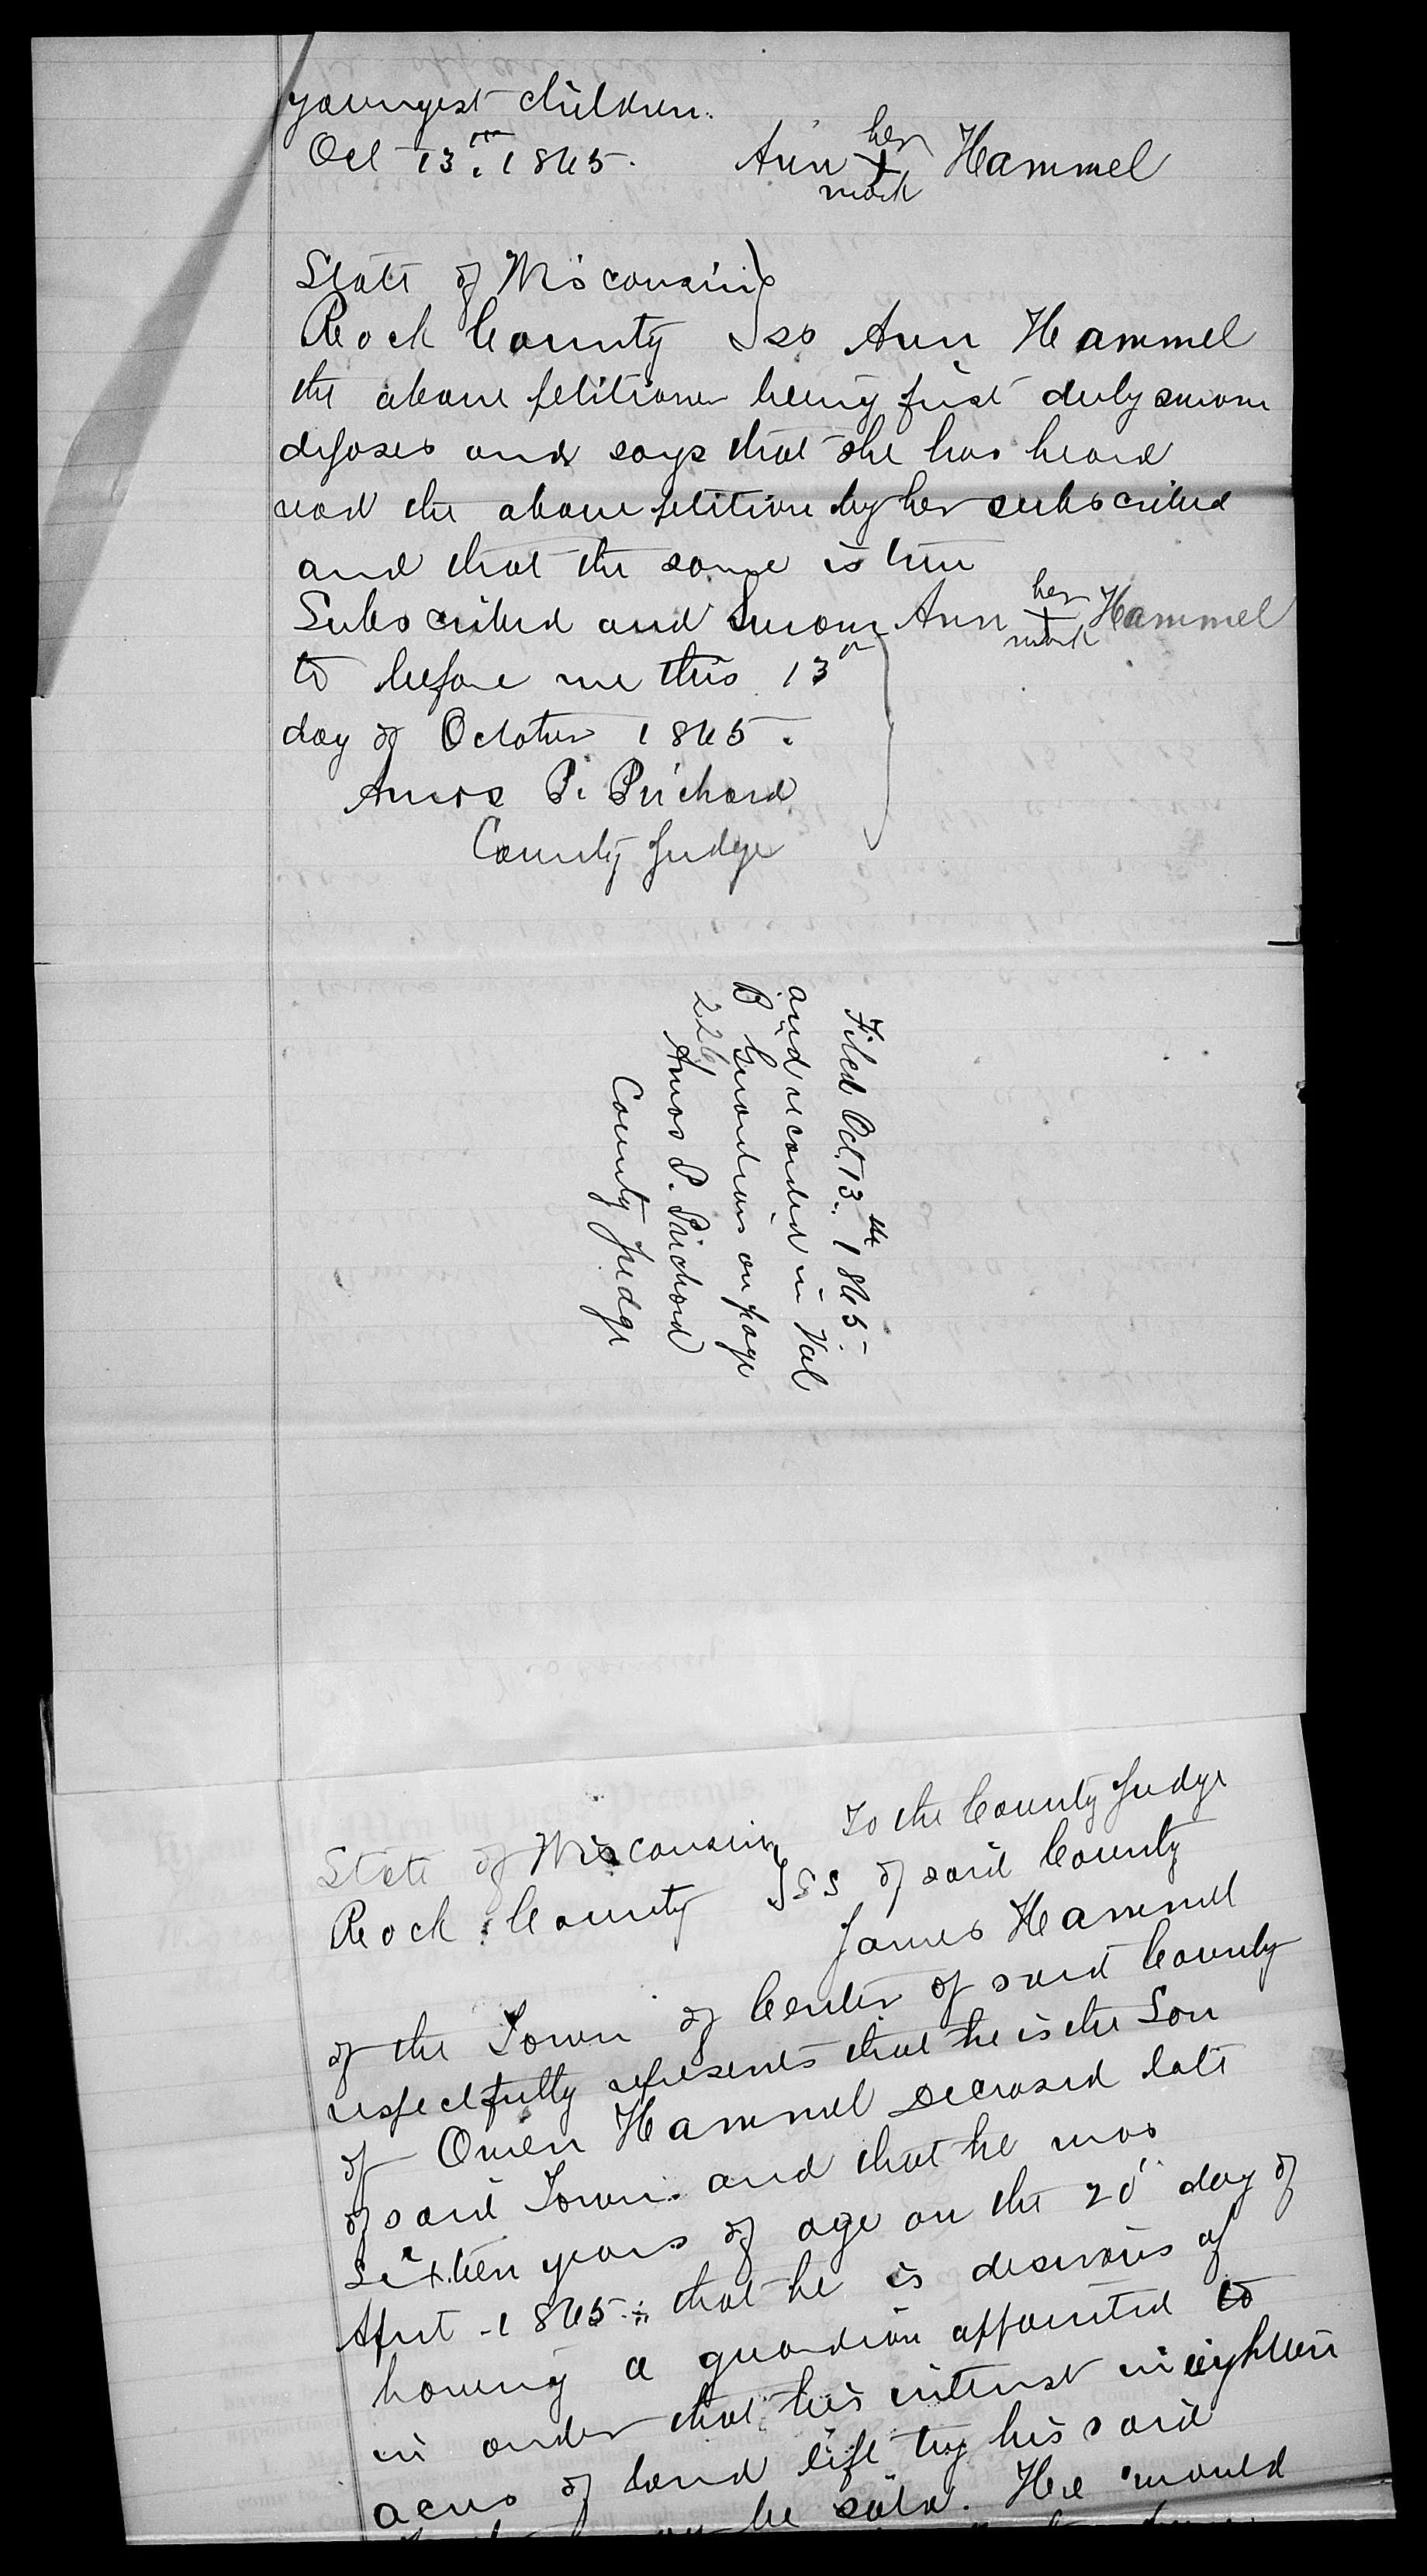 youngest children.
Oct 13th. 1865. Ann her + mark Hammel
State of Wisconsin
Rock County ss Ann Hammel
the above petitioner being first duly sworn
deposes and says that she has heard
read the above petition by her subscribed
and that the same is true
Subscribed and Sworn Ann her + mark Hammel
to before me this 13th
day of October 1865.
Amos P. Prichard
County Judge
Filed Oct. 13th. 1865.
and recorded in Vol
B Guardians on page
226
Amos P. Prichard
County Judge
State of Wisconsin To the County Judge
Rock County SS of said County
James Hammel
of the Town of Center of said County
respectfully represents that he is the Son
of Owen Hammel Deceased late
of said Town. and that he was
Sixteen years of age on the 20 day of
April 1865. that he is desirous of
having a guardian appointed to
in order that his interest in eighteen
acres of land left by his said
be sold. He would